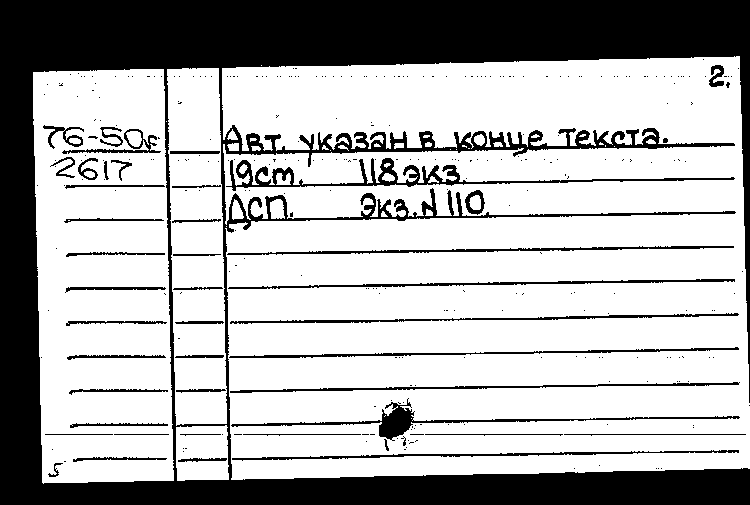 2.
76-50
Авт. указан в конце текста.
2617
19ст. 118 экз.
ДСП. Экз. N 110.
5